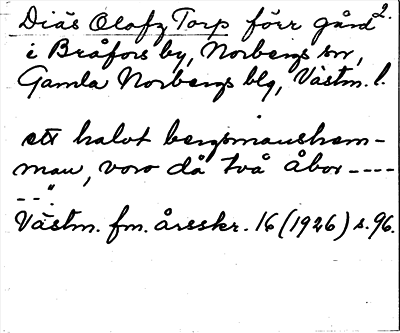 Diäs Olofz Torp förr gård 2.
i Bråfors by, Norbergs sn,
Gamla Norbergs blg, Västm. l.
ett halvt bergsmanshem-
man, voro då två Åbor ----
--".
Västm. fm. årsskr. 16 (1926) s. 96.